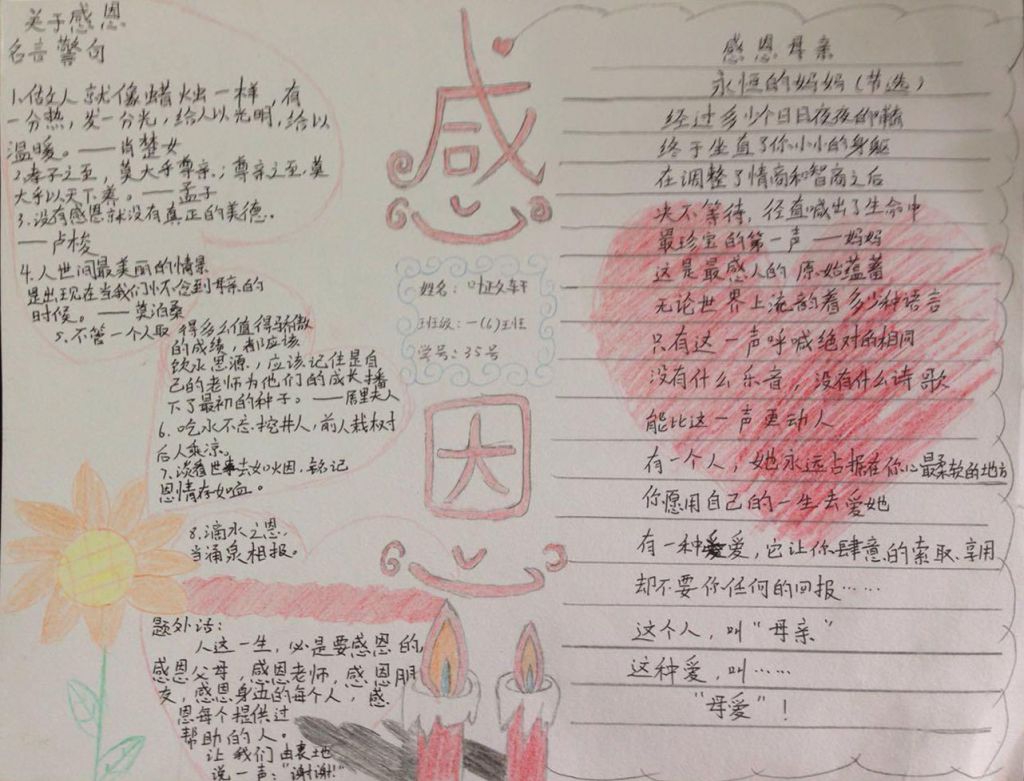 关于感恩
名言警句
1.做文人就像蜡烛一样,有
一分热,发一分光,给人以光明,给以
温暖。——肖楚女
2.孝子之至,莫大乎尊亲;尊亲之至,莫
大乎以天下养。——孟子
3.没有感恩就没有真正的美德。
——卢梭
4.人世间最美丽的情景
是出现在当我们怀念到母亲的
时候。——莫泊桑
5.不管一个人取得多么值得骄傲
的成绩,都应该
饮水思源,应该记住是自
己的老师为他们的成长播
下了最初的种子。——居里夫人
6.吃水不忘挖井人,前人栽树
后人乘凉。
7.淡看世事去如烟,铭记
恩情存如血。
8.滴水之恩
当涌泉相报。
题外话:
人这一生,必是要感恩的
感恩父母,感恩老师,感恩朋
友,感恩身边的每个人,感
恩每个提供过
帮助的人。
让我们由衷地
说一声:"谢谢!"
感
姓名:叶正文轩
班级:一(6)班
学号:35号
因
感恩母亲
永恒的妈妈(节选)
经过多少个日日夜夜的
终于坐直了你小小的身躯
在调整了情商和智商之后
决不等待,径直喊出了生命中
最珍宝的第一声——妈妈
这是最感人的原始蕴蓄
无论世界上流韵着多少种语言
只有这一声呼喊绝对的相同
没有什么乐音,没有什么诗歌
能比这一声更动人
有一个人,她永远占据在你心最柔软的地方
你愿用自己的一生去爱她
有一种爱,它让你肆意的索取、享用
却不要你任何的回报……
这个人,叫"母亲"
这种爱,叫……
"母爱"!